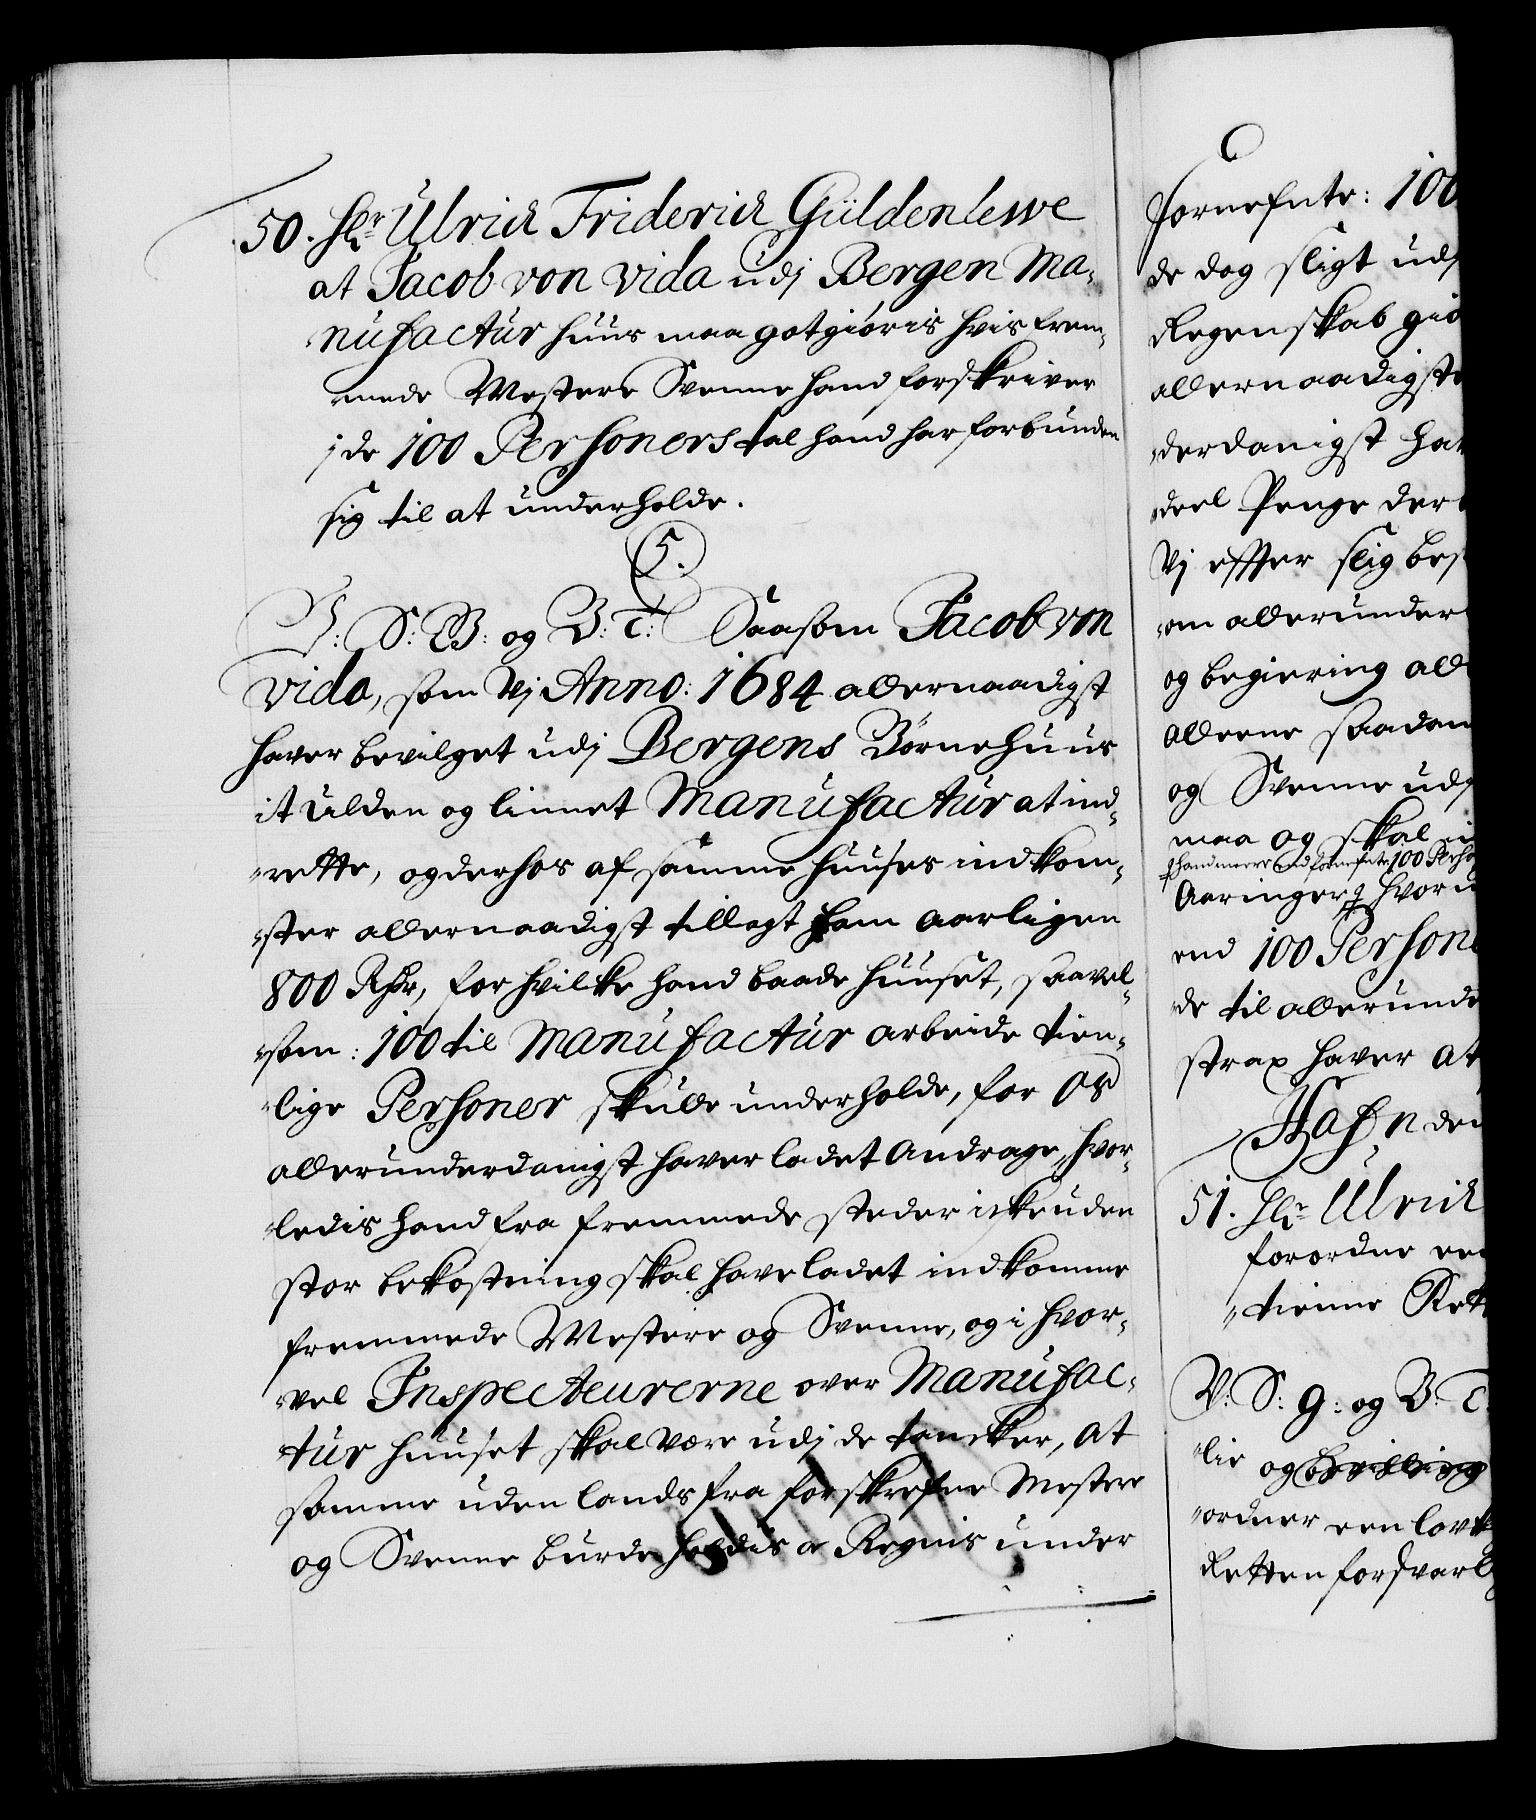 50. Hr. Ulrich Friderich Güldenlewe
at Jacob von Vida udj Bergen Ma-
nufactur huus maa gotgiøris hvis frem-
mede Mestere Svenne hand forskriver
j de 100 Personers tal hand har forbunden
sig til at underholde.
5.
V: S: G: og B: T: Saasom Jacob von
Vida, som Vj Anno: 1684 allernaadigst
hafver bevilget udj Bergens Børnehuus
it ulden og linnet Manufactur at ind-
rette, og derhos af samme huuses indkom-
ster allernaadigst tillagt ham aarligen
800 Rdr, for hvilke hand baade huuset, saavel-
som: 100 til Manufactur arbeide tien-
lige Personer skulle underholde, for Os
allerunderdanigst hafver ladet andrage, hvor-
ledis hand fra fremmede steder icke uden
stor bekostning skal hafve ladet indkomme
fremmede Mestere og Svenne, og i hvor-
vel Inspecteurerne over Manufac-
tur huuset skal være udj de tancker, at
samme uden lands fra forskrefne Mestere
og Svenne burde holdis og Regnis under
fornefnte: 100
de dog sligt udj
Regenskab giø
allernaadigste
derdanigst ha
deel Penge der
Vj effter slig bes
om allerunder
og begiering all
alleene saadan
og Svenne udj
maa og skal
fornefnte 100 Perso
Aaringer, hvor
end 100 Persone
de til allerunde
strax hafver at
Hafn den
51. Hr. Ulrich
forordne een
tienne Rett
V: S: G: og B: T:
lie og bevilling
ordner een lov
Retten forsvarl